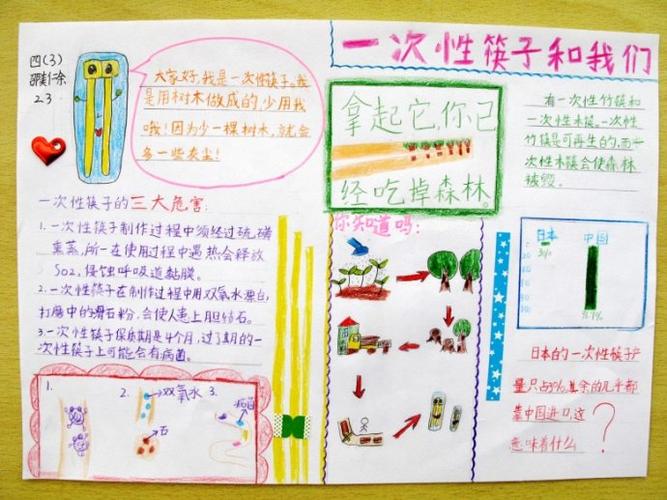 一次性筷子和我们
四(3)
23
大家好,我是一次性筷子。我
是用树木做成的,少用我
哦!因为少一棵树木,就会
多一些灰尘!
一次性筷子的三大危害:
1.一次性筷子制作过程中须经过硫磺
熏蒸,所一在使用过程中遇热会释放
SO2,侵蚀呼吸道黏膜。
2.一次性筷子在制作过程中用双氧水漂白,
打磨中的滑石粉,会使人患上胆结石。
3.一次性筷子保质期是4个月,过了期的一
次性筷子上可能会有病菌。
1.
2.
双氧水
石
3.
病菌
拿起它,你已
经吃掉森林。
你知道吗:
有一次性竹筷和
一次性木筷。一次性
竹筷是可再生的,而一
次性木筷会使森林
被毁。
日本
中国
日本的一次性筷子产
量只占3%,其余的几乎都
靠中国进口,这
意味着什么
?